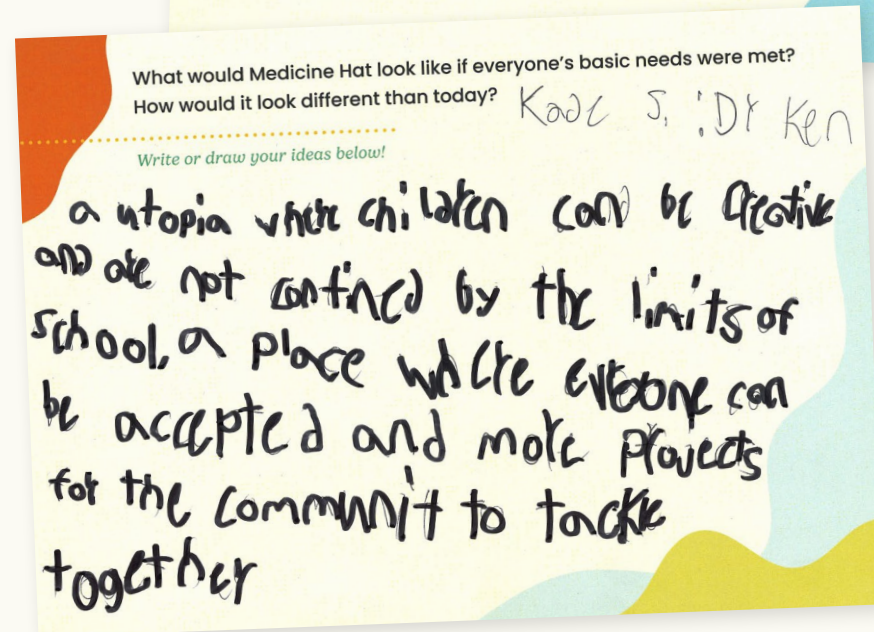 What would Medicine Hat look like if everyone's basic needs were met?
How would it look different than today? Kade S. : Dr Ken
Write or draw your ideas below!
a utopia where children can be creative
and are not confined by the limits of
school, a place where eveone can
be accepted and more provects
for the communit to tackle
together